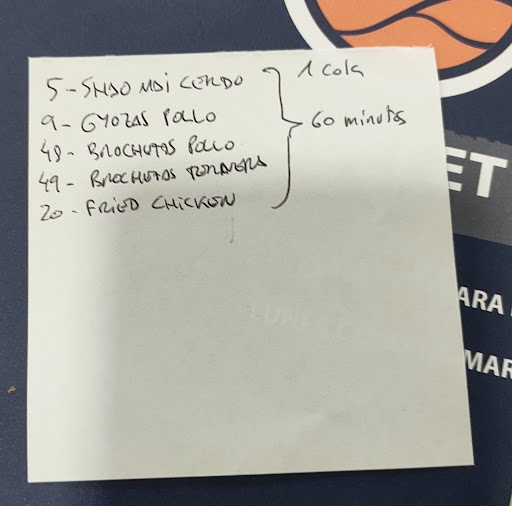 5 - SHAO MAI CERDO
9 - GYOZAS POLLO
48 - BROCHETAS POLLO
49 - BROCHETAS TERNERA
20 - FRIED CHICKEN
1 Cola
60 minutos
ET
ARA
MAR
LUNES